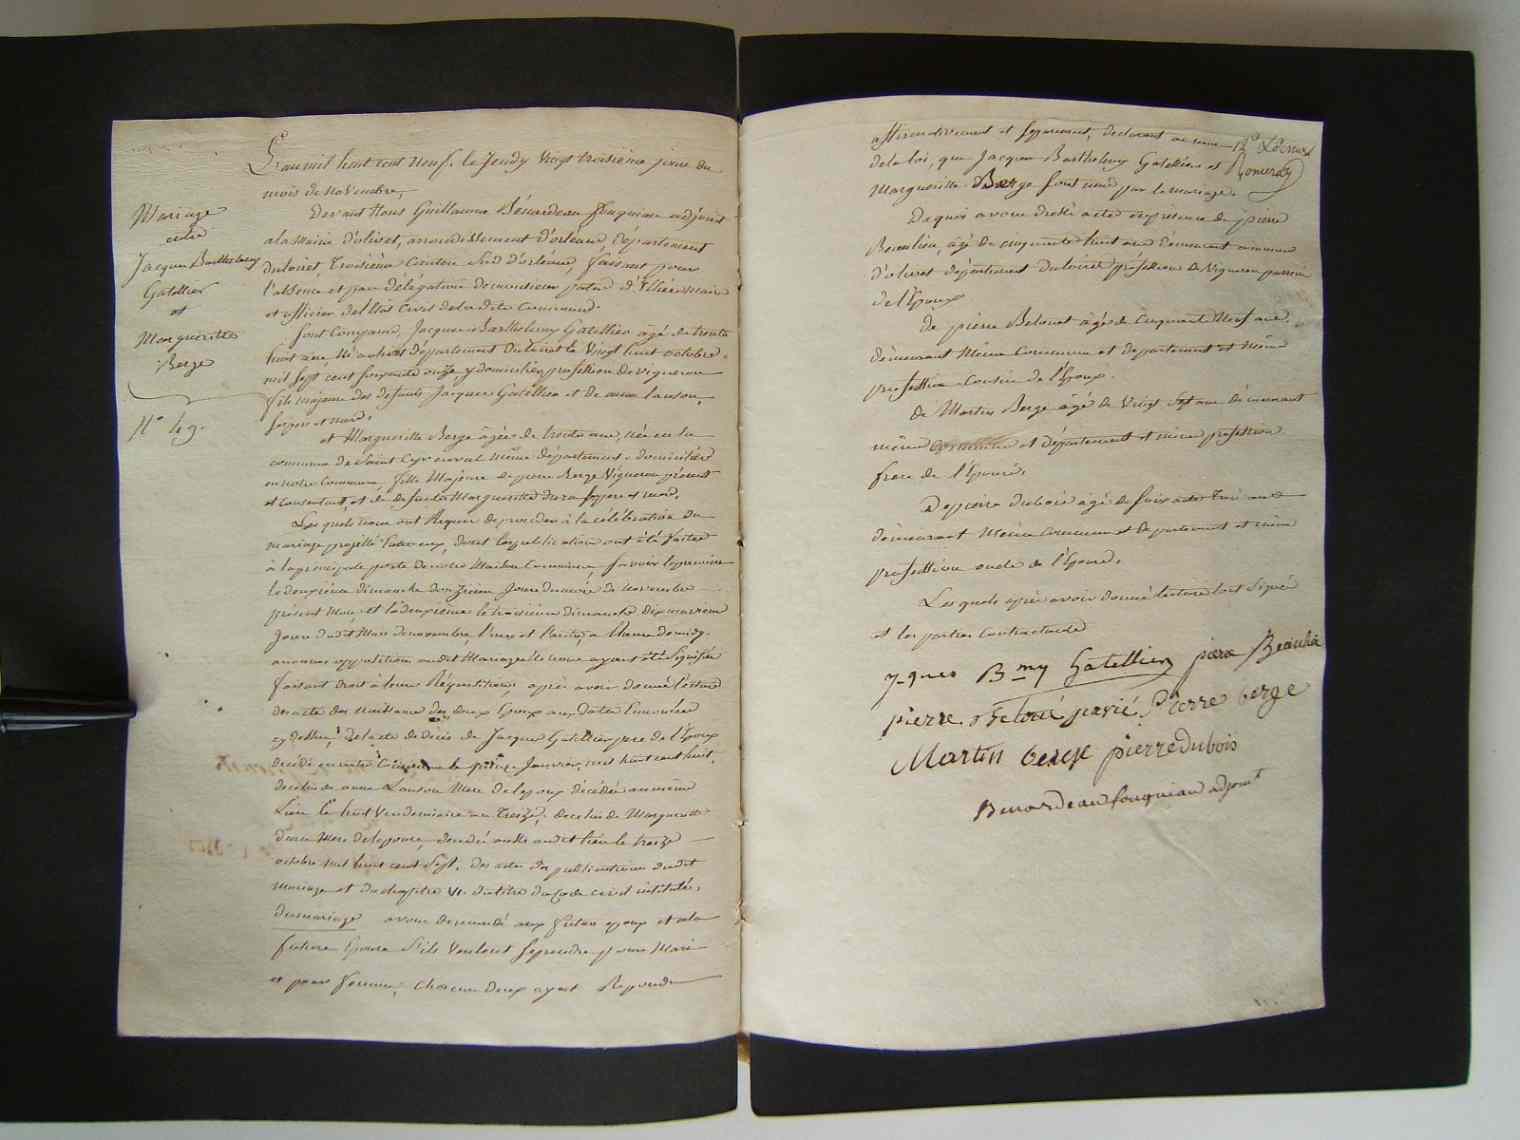 L'an mil huit cent neuf, le Jeudy Vingt troisième jour du
mois de novembre,
Mariage
entre
Jacques Barthelemy
Gatellier
et
Marguerite
Berge
N° 49.
Devant Nous Guillaume Bénardeau fouqueau adjoint
a la Mairie d'olivet, arrondissement d'orléans, Département
du loiret, Troisième Canton Sud d'orléans, faisant pour
l'absence et par délégation de monsieur maire
et officier de l'Etat Civil de la dite Commune.
Sont Comparus, Jacques Barthelemy Gatellier âgé de trente
huit ans Né Département du loiret le Vingt huit octobre
mil sept cent soixante onze y domicilié, profession de vigneron
fils majeur des defunts Jacques Gatellier et de anne lanson,
ses pere et mere.
et Marguerite Berge âgée de trente ans, née en la
commune de Saint Cyr en val même département, domiciliée
en notre Commune, fille Majeure de pierre Berge Vigneron présent
et Consentant, et de defunte Marguerite ses pere et mere,
Les quels nous ont Requis de proceder à la célébration du
mariage projetté entre eux, dont les publications ont été faites
à la principale porte de notre Maison Commune, savoir la premiere
le deuxième dimanche douzième Jour du mois de novembre
présent Mois, et la deuxième le troisième dimanche dix neuvieme
Jour dudit Mois de novembre, l'une et l'autre, a l'heure de midy.
aucunes oppositions audit Mariage ne nous ayant été Signifiée
faisant droit à leur Réquisition, après avoir donné lecture
des acte des Naissance des deux Epoux aux dates Enoncées
cy dessus, de l'acte de décès de Jacques Gatellier pere de l'Epoux
décédé en notre Commune le Janvier, mil huit cent huit,
de celui de anne Lanson Mere de l'époux décédée au même
Lieu le huit Vendemiaire an Treize, de celui de Marguerite
Mere de l'epouse, décedé audit lieu le treize
octobre mil huit cent Sept, des actes des publications dudit
mariage et du chapitre VI du titre du Code civil intitulé,
du mariage avons demandé aux futur epoux et a la
future Epouse S'ils Veulent se prendre pour Mari
et pour femme, chacun deux ayant Repondu
affirmativement et separement, declarons au nom
de la loi, que Jacques Barthelemy Gatellier et
Marguerite Berge sont unis par le mariage.
De quoi avons dressé acte en présence de pierre
Beaulieu, âgé de cinquante huit ans demeurant commune
d'olivet departement du loiret profession de Vigneron
de l'Epoux
de pierre Belouet âgé de Cinquante Neuf ans
demeurant Même Commune et departement et même
profession cousin de l'Epoux.
de Martin Berge âgé de Vingt Sept ans demeurant
même commune et département et même profession
frere de l'Epouse.
De pierre dubois âgé de soixante trois ans
demeurant Même Commune et departement et même
profession oncle de l'Epouse.
Les quels après avoir donné lecture l'ont Signé
et les parties Contractante
B=my Gatellier pierre Beaulié
pierre Pierre berge
Martin berge pierre dubois
Benardeau fouqueau adjoint